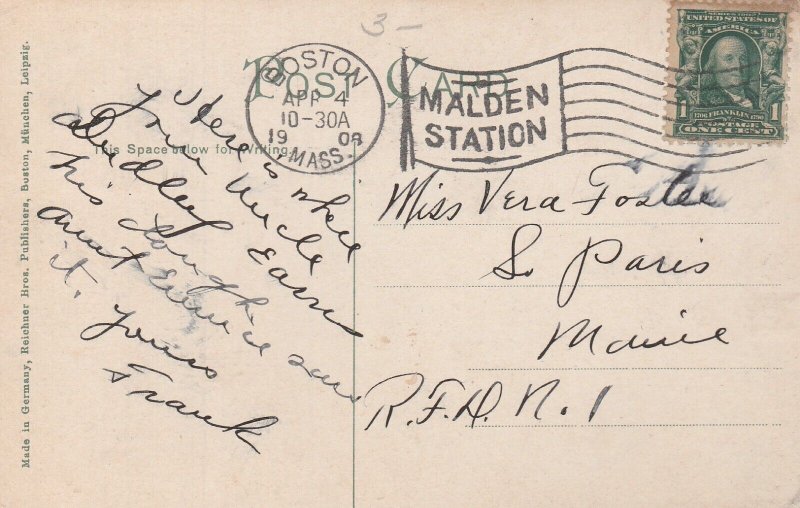 3-
POST CARD
BOSTON
APR 4
10-30A
19 08
MASS.
MALDEN
STATION
UNITED STATES OF
AMERICA
1 FRANKLIN 1
POSTAGE
ONE CENT
This Space below for Writing.
Here is where
your Uncle
Dudley Earns
his dough &
aunt Eunice saves
it.
Yours
Frank
Miss Vera Foster
S. Paris
Maine
R.F.D. N. 1
Made in Germany, Reichner Bros. Publishers, Boston, München, Leipzig.